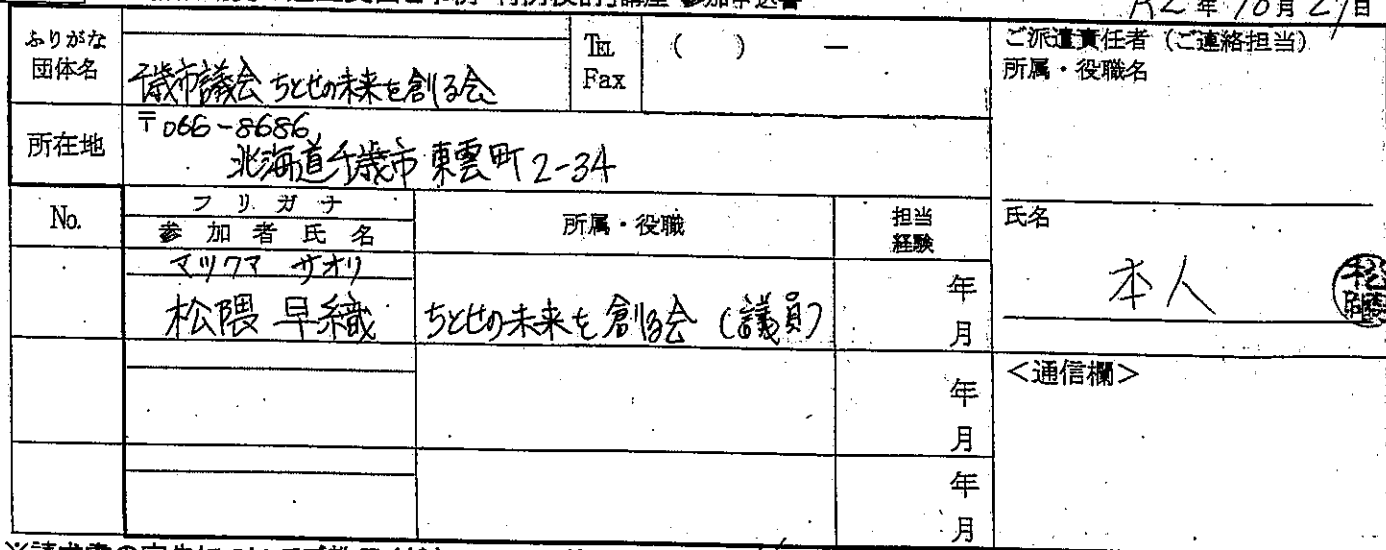 講座 参加申込書
R2年10月29日
ふりがな
団体名
千歳市議会 ちとせの未来を創る会
TEL ( ) ー
Fax
ご派遣責任者（ご連絡担当）
所属・役職名
所在地
〒066-8686
北海道千歳市東雲町2-34
No.
フリガナ
参加者氏名
所属・役職
担当
経験
氏名
マツクマ サオリ
松隈 早織
ちとせの未来を創る会（議員）
年
月
本人
松隈
＜通信欄＞
年
月
年
月